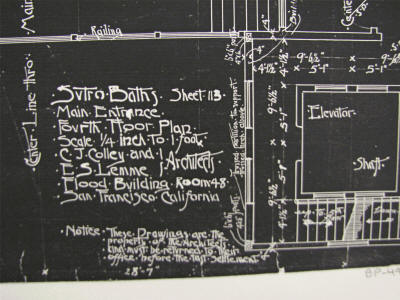 Main
Railing
Center Line thro.
Center
Sutro Baths. Sheet 113.
Main Entrance.
Fourth Floor Plan.
Scale 1/4 inch to 1 foot.
C. J. Colley and
E. S. Lemme } Architects
Flood Building Room 48.
San Francisco California
Notice: These Drawings are the
property of the Architects
and must be returned to their
office before the last settlement.
28'-7"
4"
9'-6 1/2"
9'-6 1/2"
4'-1 1/2"
5'-1"
5'-1"
9'-6 1/2"
5'-1"
5'-1"
9'-6 1/2"
4'-1 1/2"
Elevator
Shaft